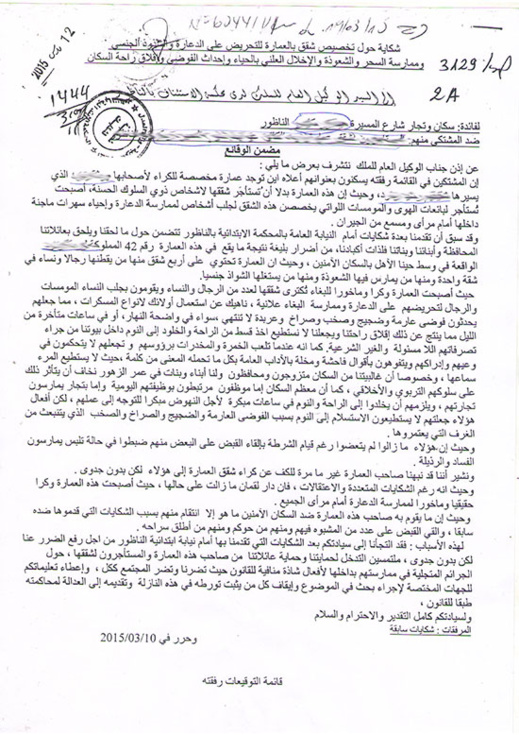 شكاية حول تخصيص شقق بالعمارة للتحريض على الدعارة والشذوذ الجنسي
وممارسة السحر والشعوذة والإخلال العلني بالحياء وإحداث الفوضى وإقلاق راحة السكان
3129
2A
12 مارس 2015
1444
لفائدة: سكان وتجار شارع المسيرة الناظور
ضد المشتكي منهم:
مضمن الوقائع
عن إذن جناب الوكيل العام للملك نتشرف بعرض ما يلي :
إن المشتكين في القائمة رفقته يسكنون بعنوانهم أعلاه اين توجد عمارة مخصصة للكراء لأصحابها الذي إن
يسيرها وحيث إن هذه العمارة بدلا ان تستأجر شققها لاشخاص ذوي السلوك الحسنة، أصبحت
تستأجر لبائعات الهوى والمومسات اللواتي يخصصن هذه الشقق لجلب أشخاص لممارسة الدعارة وإحياء سهرات ماجنة
داخلها أمام مرأى ومسمع من الجيران .
وقد سبق أن تقدمنا بعدة شكايات أمام النيابة العامة بالمحكمة الابتدائية بالناظور تتضمن ما لحقنا ويلحق بعائلاتنا
المحافظة وأبنائنا وبناتنا فلذات أكبادنا، من أضرار بليغة نتيجة ما يقع في هذه العمارة رقم 42 المملوكة
الواقعة في وسط حينا الأهل بالسكان الأمنين ، وحيث ان العمارة تحتوي على أربع شقق منها من يقطنها رجالا ونساء في
شقة واحدة ومنها من يمارس فيها الشعوذة ومنها من يستغلها الشواذ جنسيا.
حيث أصبحت العمارة وكرا وماخورا للبغاء تكترى شققها لعدد من الرجال والنساء ويقومون بجلب النساء المومسات
والرجال لتحريضهم على الدعارة وممارسة البغاء علانية ، ناهيك عن استعمال أولائك لانواع المسكرات ، مما جعلهم
يحدثون فوضى عارمة وضجيج وصخب وصراخ وعربدة لا تنتهي ،سواء في واضحة النهار، أو في ساعات متأخرة من
الليل مما ينتج عن ذلك إقلاق راحتنا ويجعلنا لا نستطيع اخذ قسط من الراحة والخلود إلى النوم داخل بيوتنا من جراء
تصرفاتهم اللا مسئولة والغير الشرعية. كما انه عندما تلعب الخمرة والمخدرات برؤوسهم و تجعلهم لا يتحكمون في
وعيهم وإدراكهم ويتفوهون بأقوال فاحشة ومخلة بالآداب العامة بكل ما تحمله المعنى من كلمة ،حيث لا يستطيع المرء
سماعها ، وخصوصا أن غالبيتنا من السكان متزوجون ومحافظون ولنا أبناء وبنات في عمر الزهور نخاف أن يتأثر ذلك
على سلوكهم التربوي والأخلاقي ، كما أن معظم السكان إما موظفون مرتبطون بوظيفتهم اليومية وإما بتجار يمارسون
تجارتهم ، ويلزمهم أن يخلدوا إلى الراحة والنوم في ساعات مبكرة لأجل النهوض مبكرا للتوجه إلى عملهم ، لكن أفعال
هؤلاء جعلتهم لا يستطيعون الاستسلام إلى النوم بسبب الفوضى العارمة والضجيج والصراخ والصخب الذي يتنبعث من
الغرف التي يعتمروها .
وحيث إن هؤلاء ما زالوا لم يتعضوا رغم قيام الشرطة بإلقاء القبض على البعض منهم ضبطوا في حالة تلبس يمارسون
الفساد والرذيلة .
ونشير أننا قد نبهنا صاحب العمارة غير ما مرة للكف عن كراء شقق العمارة إلى هؤلاء لكن بدون جدوى .
وحيث انه رغم الشكايات المتعددة والاعتقالات ، فإن دار لقمان ما زالت على حالها ، حيث أصبحت هذه العمارة وكرا
حقيقيا وماخورا لممارسة الدعارة أمام مرأى الجميع .
وحيث إن ما يقوم به صاحب هذه العمارة ضد السكان الأمنين ما هو إلا انتقام منهم بسبب الشكايات التي قدموها ضده
سابقا ، والقي القبض على عدد من المشبوه فيهم ومنهم من حوكم ومنهم من أطلق سراحه .
لهذه الأسباب : فقد التجأنا إلى سيادتكم بعد الشكايات التي تقدمنا بها أمام نيابة ابتدائية الناظور من اجل رفع الضرر عنا
لكن بدون جدوى ، ملتمسين التدخل لحمايتنا وحماية عائلاتنا من صاحب هذه العمارة والمستأجرون لشققها ، حول
الجرائم المتجلية في ممارستهم بداخلها لأفعال شاذة منافية للقانون حيث تضرنا وتضر المجتمع ككل ، وإعطاء تعليماتكم
للجهات المختصة لإجراء بحث في الموضوع وإيقاف كل من يثبت تورطه في هذه النازلة وتقديمه إلى العدالة لمحاكمته
طبقا للقانون ،
ولسيادتكم كامل التقدير والاحترام والسلام
المرفقات : شكايات سابقة
وحرر في 2015/03/10
قائمة التوقيعات رفقته